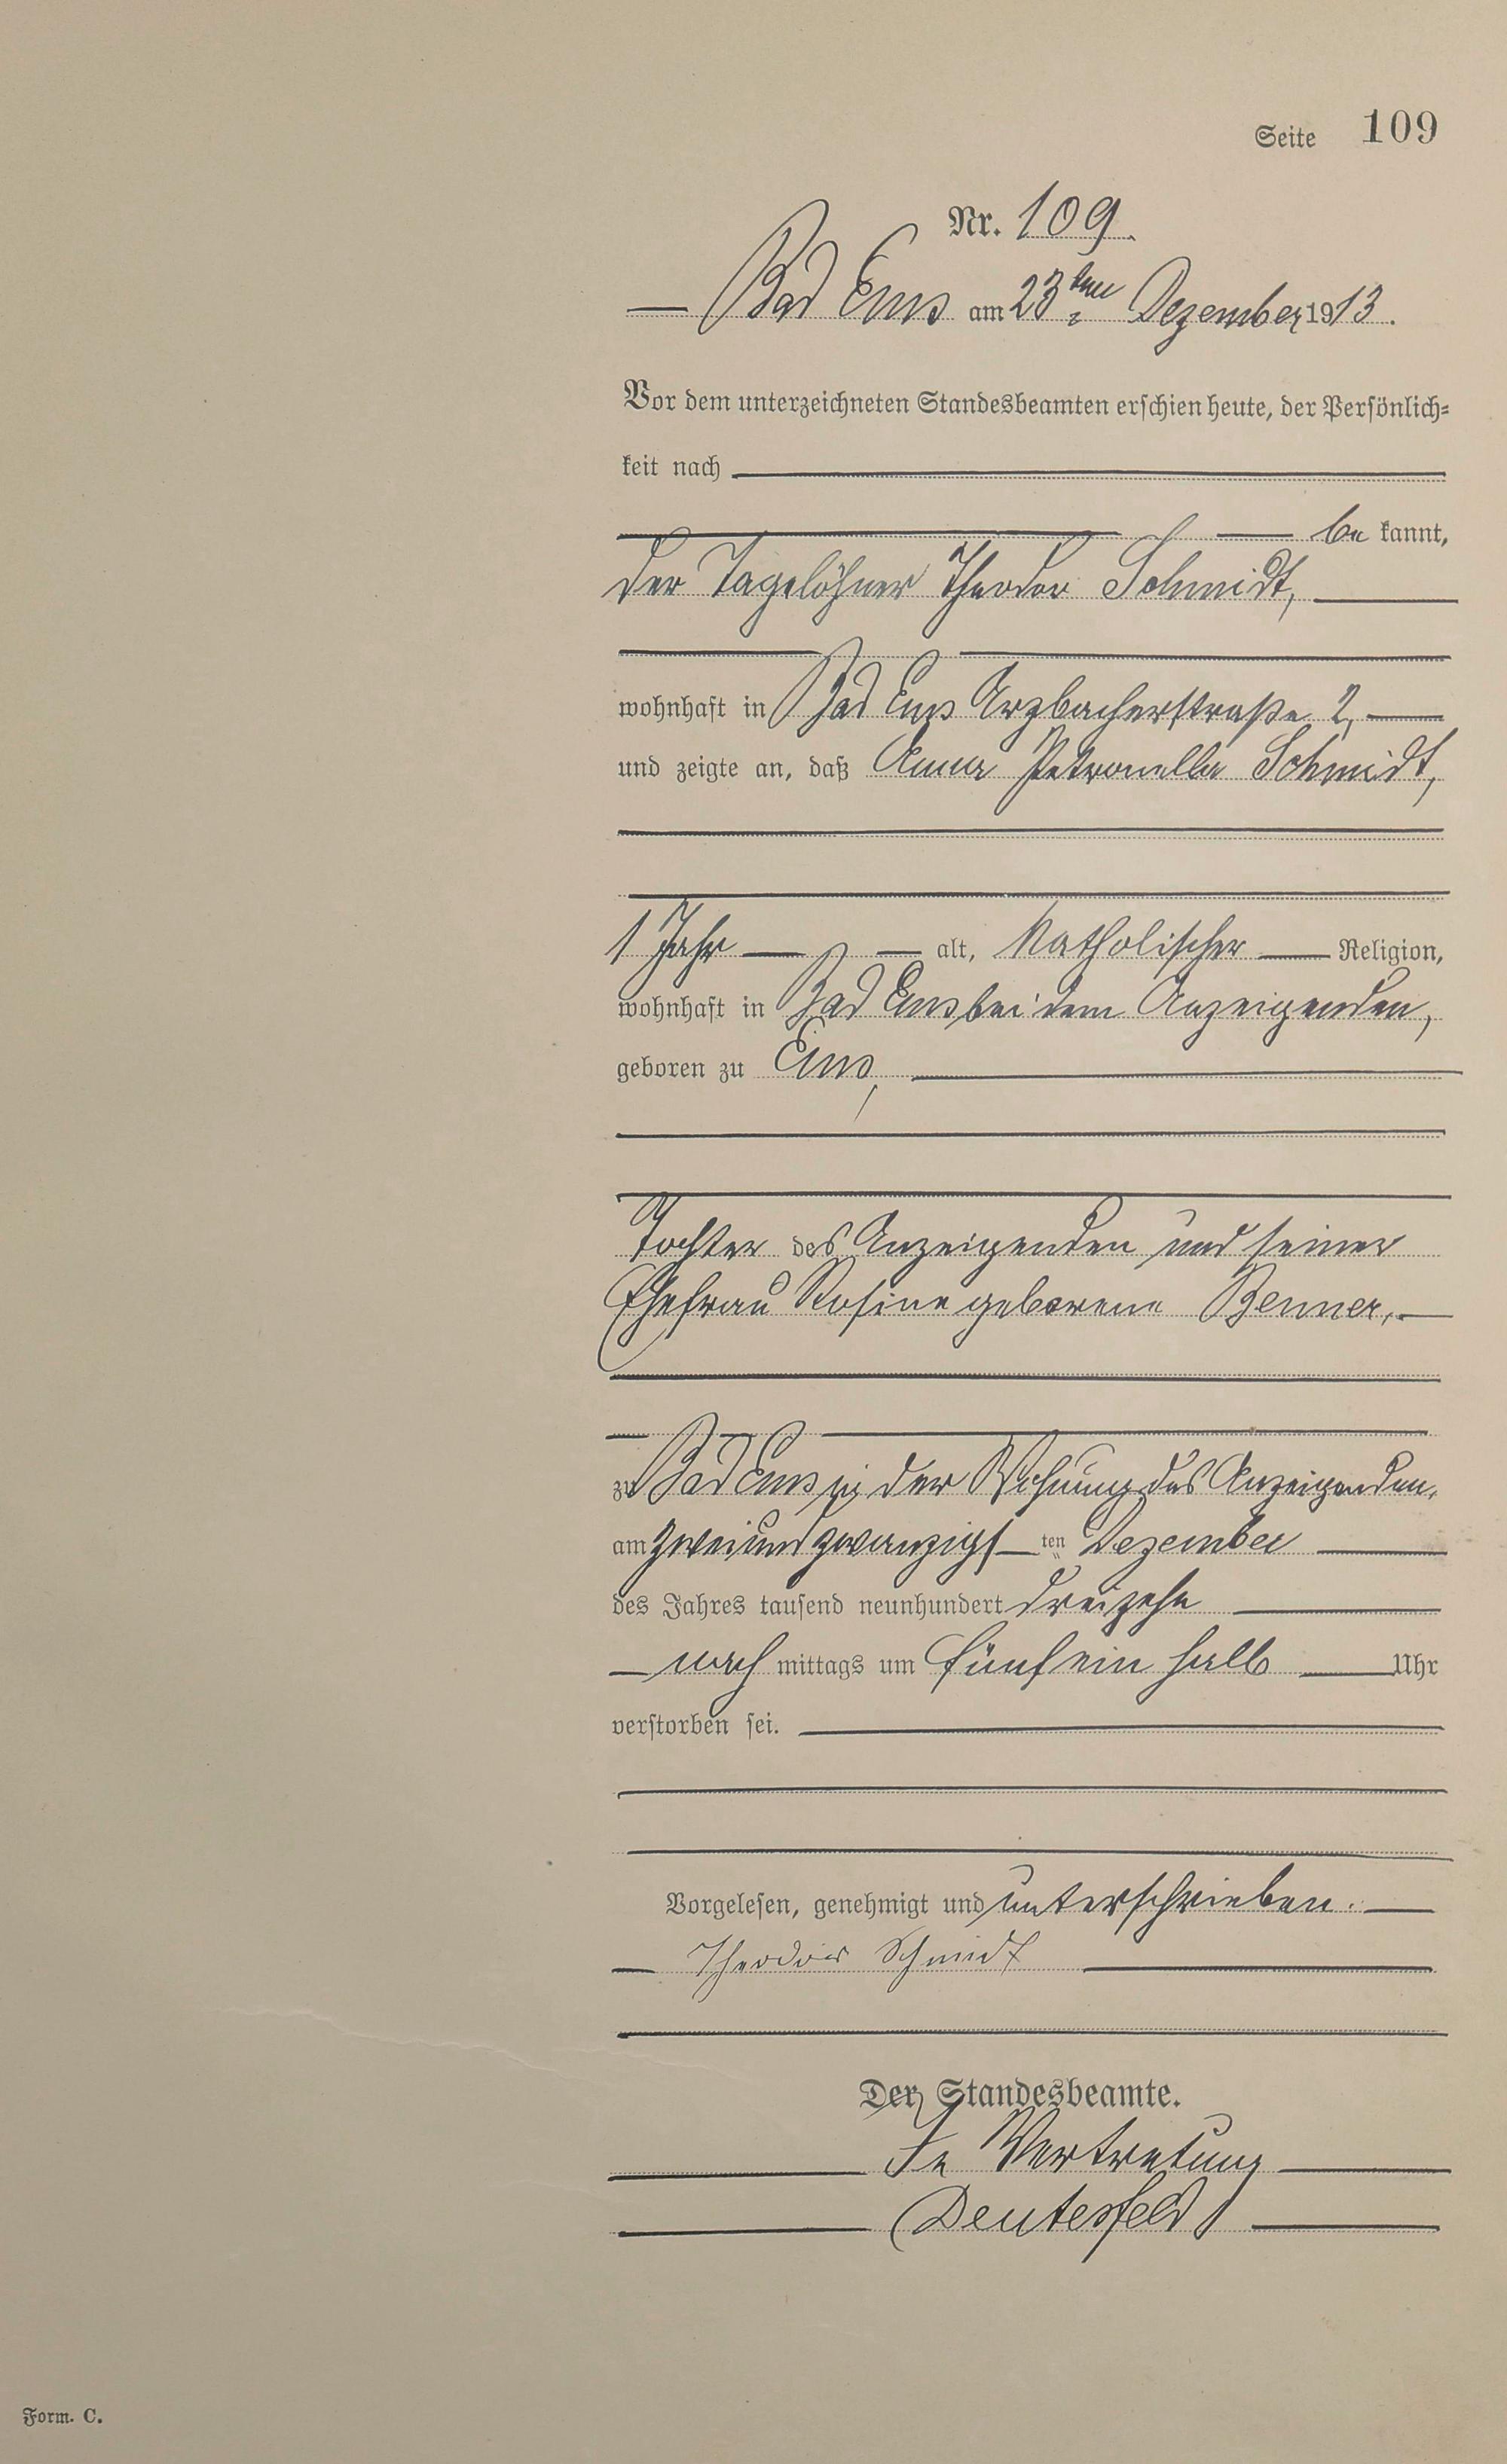 Seite 109
Nr. 109.
Bad Ems am 23ten Dezember 1913.
Vor dem unterzeichneten Standesbeamten erschien heute, der Persönlich=
keit nach
be kannt,
der Tagelöhner Theodor Schmidt,
wohnhaft in Bad Ems Arzbacherstraße 2,
und zeigte an, daß Anna Petronella Schmidt,
1 Jahr alt, Katholischer Religion,
wohnhaft in Bad Ems bei dem Anzeigenden,
geboren zu Ems,
Tochter des Anzeigenden und seiner
Ehefrau Rosine geborene Benner,
zu Bad Ems in der Wohnung des Anzeigenden,
am zweiundzwanzigsten Dezember
des Jahres tausend neunhundert dreizehn
nach mittags um fünf ein halb Uhr
verstorben sei.
Vorgelesen, genehmigt und unterschrieben.
Theodor Schmidt
Der Standesbeamte.
In Vertretung
Deutesfeld
Form. C.